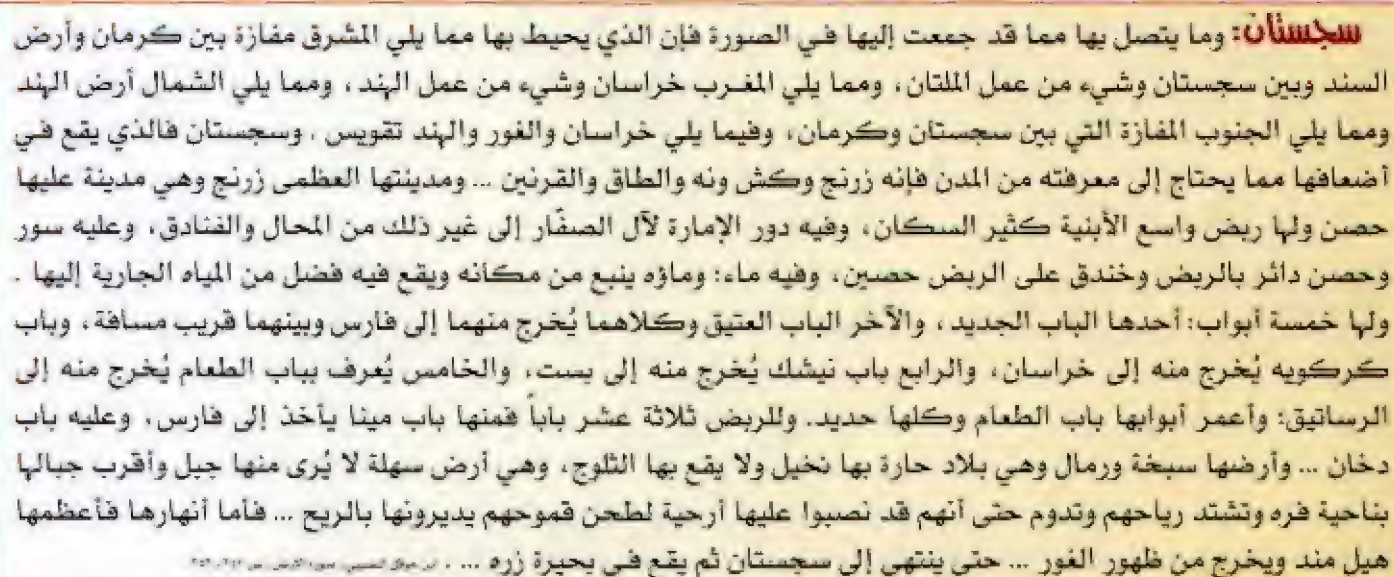 سجستان: وما يتصل بها مما قد جمعت إليها في الصورة فإن الذي يحيط بها مما يلي المشرق مفازة بين كرمان وأرض
السند وبين سجستان وشيء من عمل الملتان، ومما يلي المغرب خراسان وشيء من عمل الهند، ومما يلي الشمال أرض الهند
ومما يلي الجنوب المفازة التي بين سجستان وكرمان، وفيما يلي خراسان والغور والهند تقويس. وسجستان فالذي يقع في
أضعافها مما يحتاج إلى معرفته من المدن فإنه زرنج وكش ونه والطاق والقرنين ... ومدينتها العظمى زرنج وهي مدينة عليها
حصن ولها ربض واسع الأبنية كثير السكان، وفيه دور الإمارة لآل الصفّار إلى غير ذلك من المحال والفنادق، وعليه سور
وحصن دائر بالربض وخندق على الربض حصين، وفيه ماء: وماؤه ينبع من مكانه ويقع فيه فضل من المياه الجارية إليها .
ولها خمسة أبواب: أحدها الباب الجديد، والآخر الباب العتيق وكلاهما يُخرج منهما إلى فارس وبينهما قريب مسافة، وباب
كركويه يُخرج منه إلى خراسان، والرابع باب نيشك يُخرج منه إلى بست، والخامس يُعرف بباب الطعام يُخرج منه إلى
الرساتيق: وأعمر أبوابها باب الطعام وكلها حديد. وللربض ثلاثة عشر باباً فمنها باب مينا يأخذ إلى فارس، وعليه باب
دخان ... وأرضها سبخة ورمال وهي بلاد حارة بها نخيل ولا يقع بها الثلوج، وهي أرض سهلة لا يُرى منها جبل وأقرب جبالها
بناحية فره وتشتد رياحهم وتدوم حتى أنهم قد نصبوا عليها أرحية لطحن قموحهم يديرونها بالريح ... فأما أنهارها فأعظمها
هيل مند ويخرج من ظهور الغور ... حتى ينتهي إلى سجستان ثم يقع في بحيرة زره ... .